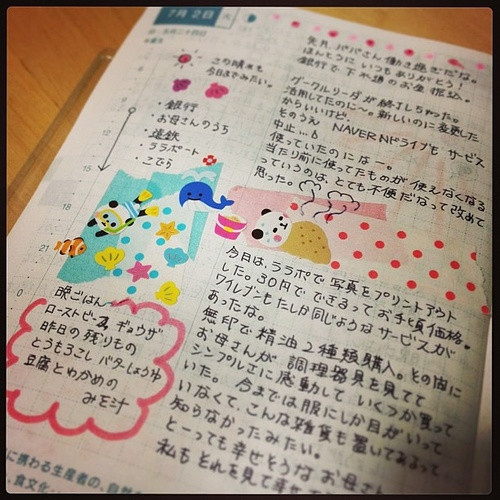 7月2日 火
この晴れも
今日までみたい。
・銀行
・お母さんのうち
・遠鉄
・ララポート
・こでら
9
12
15
18
21
0
晩ごはん
ローストビーフ ギョウザ
昨日の残りもの
とうもろこし バターしょうゆ
豆腐とわかめの
みそ汁
に携わる生産者の、自然
食文化
先月、パパさん働き過ぎだな。
ほんとうに いつもありがとう!
銀行で
グーグルリーダが終了しちゃった。
活用してたのに〜。新しいのに変更した
からいいけど。
そのうえ NAVERNドライブも サービス
中止…。
使っていたのになー。
当たり前に使ってたものが 使えなくなる
っていうのは、とても不便だなって改めて
思った。
今日は、ララポで 写真をプリントアウト
した。30円で できるってお手頃価格。
ワイレブンもたしか同じようなサービスが
あったな。
無印で精油2種類購入。その間に
お母さんが 調理器具を見てて
シンプルさに感動して いくつか買って
いた。今までは服にしか目がいって
いなくて、こんな雑貨も置いてあるって
知らなかったみたい。
とーっても幸せそうな お母さん
私もそれを見て幸せ